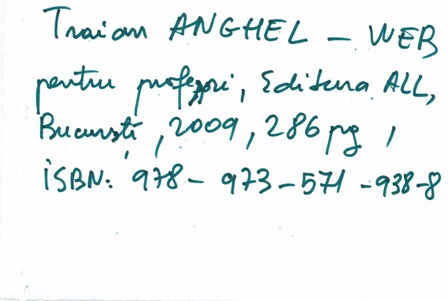 Traian ANGHEL - WEB
pentru profesori, Editura ALL,
București, 2009, 286 pg,
iSBN: 978 - 973 - 571 - 938-8